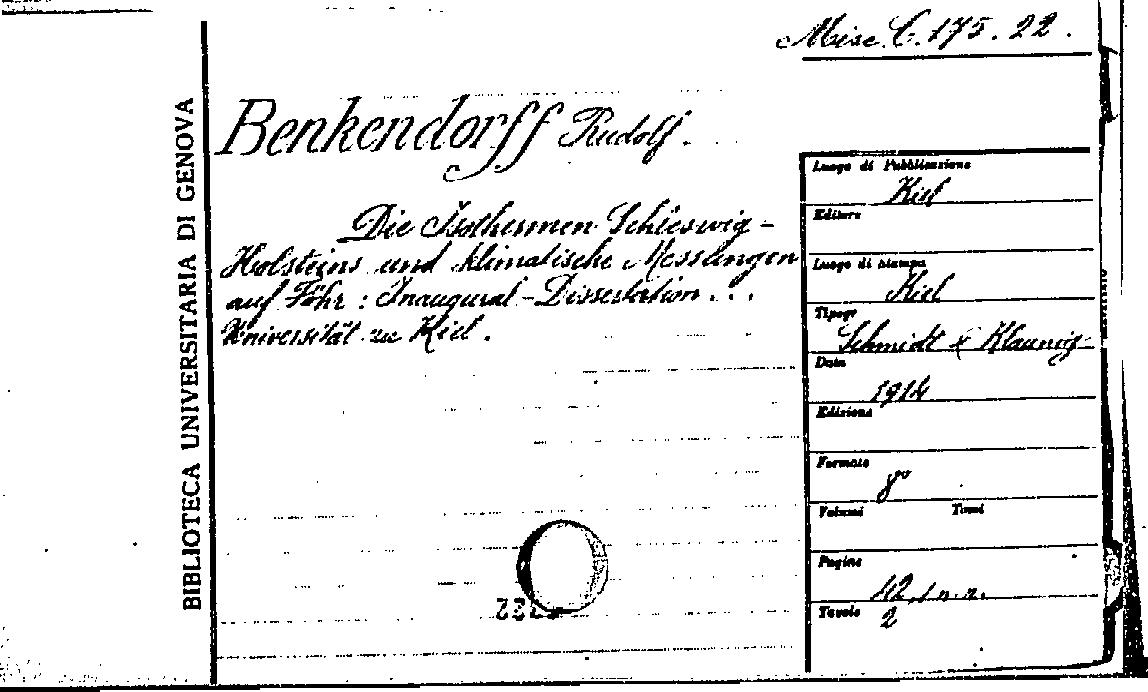 Misc. C. 175. 22.
BIBLIOTECA UNIVERSITARIA DI GENOVA
Benkendorff Rudolf.
Die Isothermen Schleswig-
Holsteins und klimatische Messungen
auf Föhr: Inaugural-Dissertation...
Universität zu Kiel.
Luogo di Pubblicazione
Kiel
Editore
Luogo di stampa
Kiel
Tipogr
Schmidt & Klaunig
Data
1914
Edizione
Formato
8º
Volumi Tomi
Pagine
42, 1 n. n.
Tavole
2